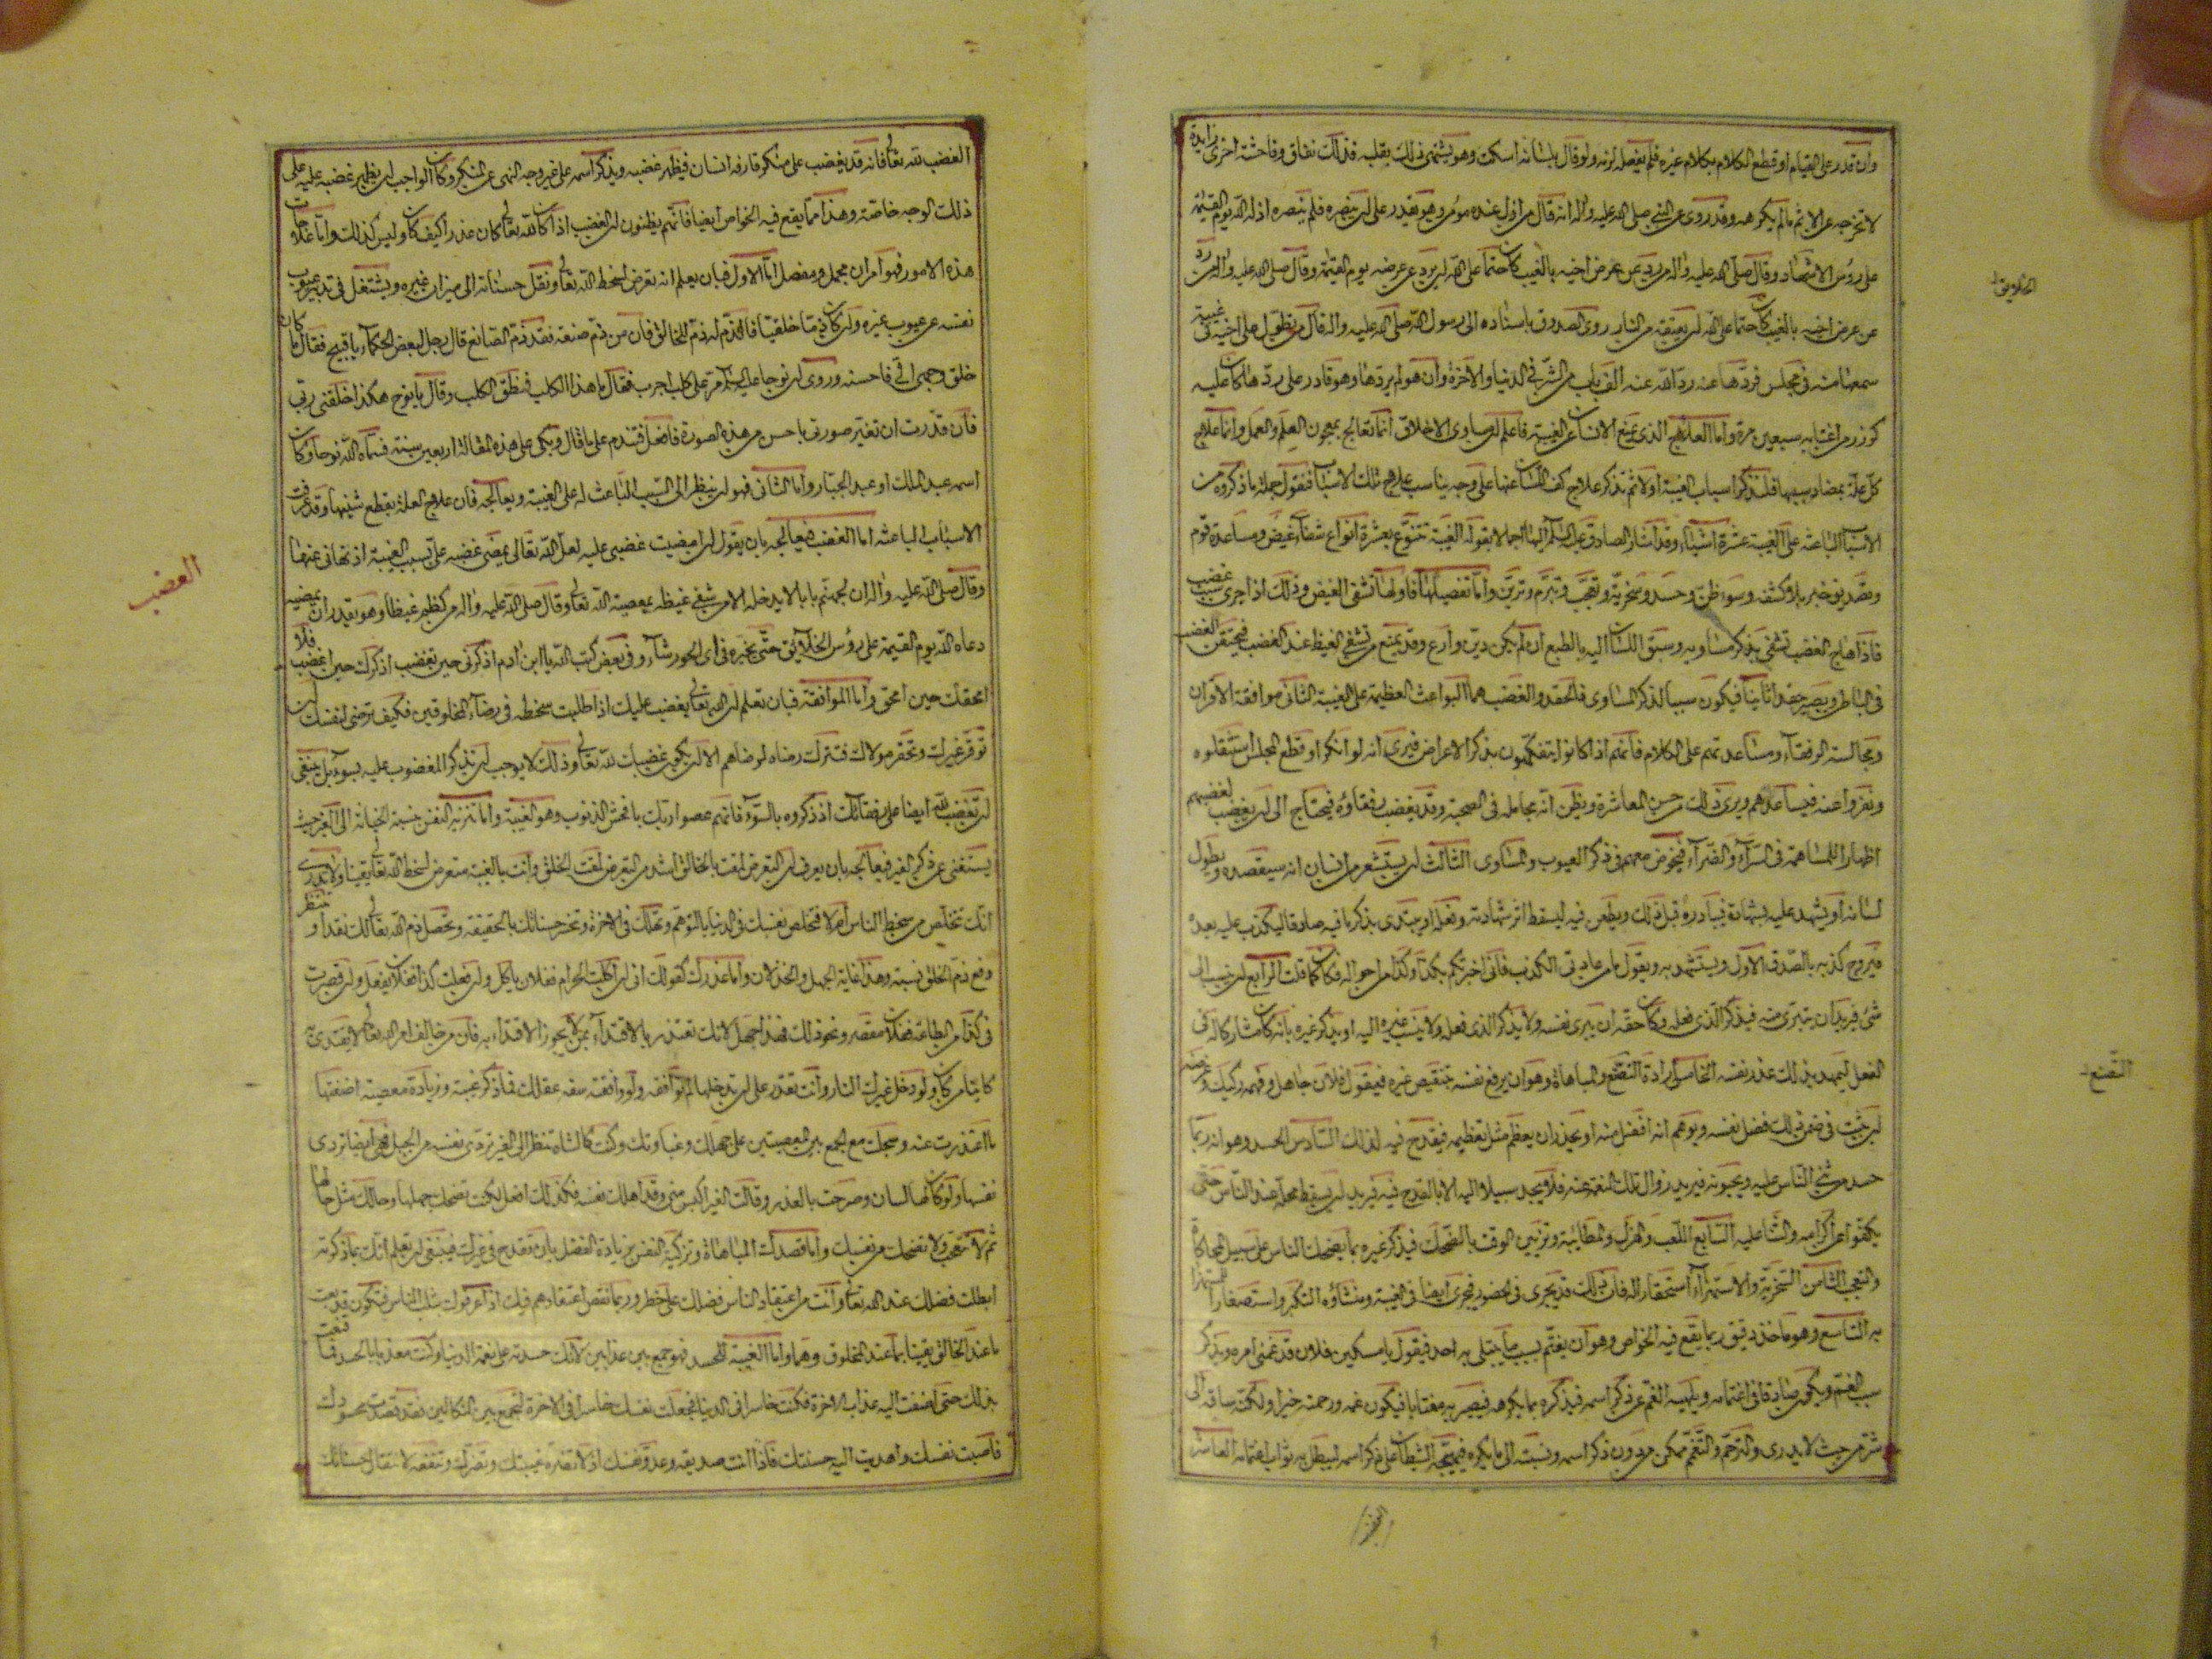 وان قدر على القيام او قطع الكلام بكلام غيره فلم يفعله لزمه ولو قال بلسانه اسكت وهو يشتهي ذلك بقلبه فذلك نفاق وفاحشة اخرى زايدة
لا تخرجه عن الاثم مالم يكرهه وقد روى عن النبي صلى الله عليه واله انه قال من اذل عنده مؤمن وهو يقدر على ان ينصره فلم ينصره اذله الله يوم القيمة
على رؤس الاشهاد وقال صلى الله عليه واله من رد عن عرض اخيه بالغيب كان حقا على الله ان يرد عن عرضه يوم القيمة وقال صلى الله عليه واله من رد
عن عرض اخيه بالغيب كان حقا على الله ان يعتقه من النار روى الصدوق باسناده الى رسول الله صلى الله عليه واله قال من تطول على اخيه في غيبة
سمعها منه في مجلس فردها عنه رد الله عنه الف باب من الشر في الدنيا والاخرة وان هو لم يردها وهو قادر على ردها كان عليه
كوزر من اغتابه سبعين مرة واما العلاج الذي يمنع الانسان عن الغيبة فاعلم ان مساوى الاخلاق انما تعالج بمعجون العلم والعمل وانما علاج
كل علة بمضاد سببها فلنذكر اسباب الغيبة اولا ثم نذكر علاج كف اللسان عنها على وجه يناسب علاج تلك الاسباب فنقول جملة ما ذكروه من
الاسباب الباعثة على الغيبة عشرة اشياء وقد اشار الصادق عليه السلام اليها اجمالا بقوله الغيبة تتنوع بعشرة انواع شفاء غيض ومساعدة قوم
وتصديق خبر بلا كشف وسوء ظن وحسد وسخرية وتعجب وتبرم وتزين واما تفصيلها فاولها تشفى الغيض وذلك اذا جرى سبب غضب
فاذا هاج الغضب تشفى بذكر مساويه وسبق اللسان اليه بالطبع ان لم يكن دين وازع وقد يمنع من تشفى الغيظ عند الغضب فيحتقن الغضب
في الباطن ويصير حقدا ثابتا فيكون سببا لذكر المساوى فالحقد والغضب هما البواعث العظيمة على الغيبة الثاني موافقة الاقران
ومجالسة الرفقاء ومساعدتهم على الكلام فانهم اذا كانوا يتفكهون بذكر الاعراض فيرى انه لو انكر او قطع المجلس استثقلوه
ونفروا عنه فيساعدهم ويرى ذلك من حسن المعاشرة ويظن انه مجاملة في الصحبة وقد يغضب رفقاؤه فيحتاج الى ان يغضب لغضبهم
اظهارا للمساهمة في السراء والضراء فيخوض معهم في ذكر العيوب والمساوى الثالث ان يستشعر من انسان انه سيقصده ويطول
لسانه او يشهد عليه بشهادة فيبادره قبل ذلك ويطعن فيه ليسقط اثر شهادته وفعله او يبتدى بذكر ما فيه صادقا ليكذب عليه بعده
فيروج كذبه بالصدق الاول ويستشهد به ويقول ما من عادتي الكذب فاني اخبرتكم بكذا وكذا من احواله فكان كما قلت الرابع ان ينسب الى
شيء فيريد ان يتبرى منه فيذكر الذي فعله وكان حقه ان يبرى نفسه ولا يذكر الذي فعله ولا ينسب غيره اليه او يذكر غيره بانه كان مشاركا له في
الفعل ليمهد بذلك عذر نفسه الخامس ارادة التصنع والمباهاة وهو ان يرفع نفسه بتنقيص غيره فيقول فلان جاهل وفهمه ركيك وغرضه
ان يثبت في ضمن ذلك فضل نفسه ويوهم انه افضل منه او يحذر ان يعظم مثل تعظيمه فيقدح فيه لذلك السادس الحسد وهو انه ربما
حسد من يثنى الناس عليه ويحبونه فيريد زوال تلك النعمة عنه فلا يجد سبيلا اليه الا بالقدح فيه فيريد ان يسقط محله عند الناس حتى
يكفوا عن اكرامه والثناء عليه السابع اللعب والهزل والمطايبة وتزيين الوقت بالضحك فيذكر غيره بما يضحك الناس على سبيل المحاكاة
والتعجب الثامن السخرية والاستهزاء استحقارا له فان ذلك قد يجرى في الحضور فيجرى ايضا في الغيبة ومنشاؤه التكبر واستصغار المستهزا
به التاسع وهو ماخذ دقيق ربما يقع فيه الخواص وهو ان يغتم بسبب ما يبتلى به احد فيقول يا مسكين فلان قد غمنى امره ويذكر
سبب الغم ويكون صادقا في اغتمامه ويلهيه الغم عن ذكر اسمه فيذكره بما يكرهه فيصير به مغتابا فيكون غمه ورحمته خيرا ولكنه ساقه الى
شر من حيث لا يدرى والترحم والتغمم ممكن من دون ذكر اسمه ونسبته الى ما يكره فيهيجه الشيطان على ذكر اسمه ليبطل به ثواب اغتمامه العاشر
الخلايق
التصنع
الغضب لله تعالى فانه قد يغضب على منكر قارفه انسان فيظهر غضبه ويذكر اسمه على غير وجه النهى عن المنكر وكان الواجب ان يظهر غضبه عليه على
ذلك الوجه خاصة وهذا مما يقع فيه الخواص ايضا فانهم يظنون ان الغضب اذا كان لله تعالى كان عذرا كيف كان وليس كذلك واما علاجات
هذه الامور فهو امران مجمل ومفصل اما الاول فبان يعلم انه تعرض لسخط الله تعالى ونقل حسناته الى ميزان غيره ويشتغل في تدبير عيوب
نفسه عن عيوب غيره وان كان ذما خلقيا فالذم له ذم للخالق فان من ذم صنعة فقد ذم الصانع قال رجل لبعض الحكماء يا قبيح فقال ما كان
خلق وجهى الي فاحسنه وروى ان نوحا عليه السلام مر على كلب اجرب فقال ما هذا الكلب فنطق الكلب وقال يا نوح هكذا خلقنى ربي
فان قدرت ان تغير صورتى باحسن من هذه الصورة فافعل فتندم على ما قال وبكى على هذه المقالة اربعين سنة فسماه الله نوحا وكان
اسمه عبد الملك او عبد الجبار واما الثاني فهو ان ينظر الى السبب الباعث له على الغيبة ويعالجه فان علاج العلة بقطع سببها وقد عرفت
الاسباب الباعثة اما الغضب فيعالجه بان يقول ان امضيت غضبى عليه لعل الله تعالى يمضى غضبه على بسبب الغيبة اذ نهانى عنها
وقال صلى الله عليه واله ان لجهنم بابا لا يدخله الا من شفى غيظه بمعصية الله تعالى وقال صلى الله عليه واله من كظم غيظا وهو يقدر ان يمضيه
دعاه الله يوم القيمة على رؤس الخلايق حتى يخيره في اى الحور شاء وفي بعض كتب الله يا ابن ادم اذكرنى حين تغضب اذكرك حين اغضب فلا
امحقك حين امحق واما الموافقة فبان تعلم ان الله تعالى يغضب عليك اذا طلبت سخطه في رضاء المخلوقين فكيف ترضى لنفسك ان
توقر غيرك وتحقر مولاك فتترك رضاه لرضاهم الا ان يكون غضبك لله تعالى وذلك لا يوجب ان تذكر المغضوب عليه بسوء بل ينبغى
ان تغضب لله ايضا على رفقائك اذ ذكروه بالسوء فانهم عصوا ربك بافحش الذنوب وهو الغيبة واما تنزيه النفس بنسبة الخيانة الى الغير حيث
يستغنى عن ذكر الغير فيعالجه بان يعرف ان التعرض لمقت الخالق اشد من التعرض لمقت الخلق وانت بالغيبة متعرض لسخط الله تعالى يقينا ولا تدرى
انك تتخلص من سخط الناس ام لا فتخلص نفسك في الدنيا بالتوهم وتهلك في الاخرة وتخسر حسناتك بالحقيقة وتحصل ذم الله تعالى لك نقدا وتنتظر
دفع ذم الخلق نسية وهذا غاية الجهل والخذلان واما عذرك كقولك انى ان اكلت الحرام ففلان ياكل وان فعلت كذا ففلان يفعل وان قصرت
في كذا من الطاعة ففلان مقصر ونحو ذلك فهذا جهل لانك تعتذر بالاقتداء بمن لا يجوز الاقتداء به فان من خالف امر الله تعالى لا يقتدى به
كائنا من كان ولو دخل غيرك النار وانت تقدر على ان لا تدخلها لم توافقه ولو وافقته سفه عقلك فما ذكر غيبة وزيادة معصية اضفتها
ما اعتذرت عنه وسجلت مع الجمع بين المعصيتين على جهلك وغباوتك وكنت كالشاة تنظر الى الغير تردى نفسه من الجبل فهى ايضا تردى
نفسها ولو كان لها لسان وصرحت بالعذر وقالت الغير اكيس منى وقد اهلك نفسه فكذلك افعل لكنت تضحك من جهلها وحالك مثل حالها
ثم لا تتعجب ولا تضحك من نفسك واما قصدك المباهاة وتزكية النفس بزيادة الفضل بان تقدح في غيرك فينبغى ان تعلم انك بما ذكرته
ابطلت فضلك عند الله تعالى وانت من اعتقاد الناس فضلك على خطر وربما نقص اعتقادهم فيك اذا عرفوك بثلب الناس فتكون قد بعت
ما عند الخالق يقينا بما عند المخلوق وهما واما الغيبة للحسد فهو جمع بين عذابين لانك حسدته على نعمة الدنيا وكنت معذبا بالحسد فما قنعت
بذلك حتى اضفت اليه عذاب الاخرة فكنت خاسرا في الدنيا فجعلت نفسك خاسرا في الاخرة لتجمع بين النكالين فقد قصدت محسودك
فاصبت نفسك واهديت اليه حسنتك فاذا انت صديقه وعدو نفسك اذ لا تضره غيبتك وتضرك وتنفعه لانتقال حسناتك
الغضب